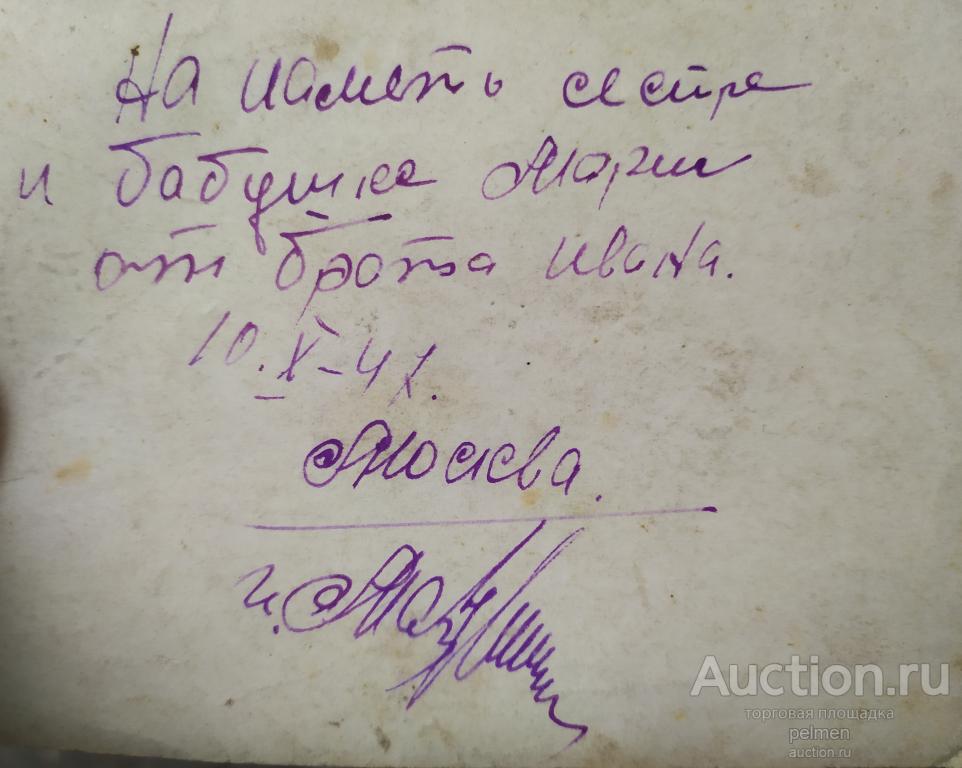 На память сестре
и бабушке Марии
от брата Ивана.
10.X-47.
Москва.
И.
Auction.ru
торговая площадка
pelmen
auction.ru